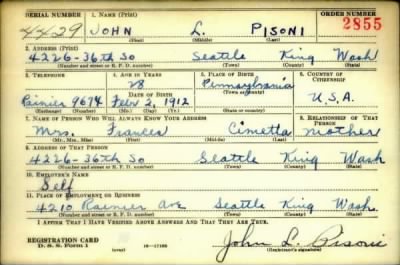 SERIAL NUMBER 1. NAME (Print) ORDER NUMBER
4429 JOHN L. PISONI 2855
(First) (Middle) (Last)
2. ADDRESS (Print)
4226-36th So Seattle King Wash
(Number and street or R. F. D. number) (Town) (County) (State)
3. TELEPHONE 4. AGE IN YEARS 5. PLACE OF BIRTH 6. COUNTRY OF CITIZENSHIP
28 Pennsylvania
Rainier 9674 DATE OF BIRTH U.S.A.
Feb 2, 1912
(Exchange) (Number) (Mo.) (Day) (Yr.) (State or country)
7. NAME OF PERSON WHO WILL ALWAYS KNOW YOUR ADDRESS 8. RELATIONSHIP OF THAT PERSON
Mrs. Frances Cimetta mother
(Mr., Mrs., Miss) (First) (Middle) (Last)
9. ADDRESS OF THAT PERSON
4226-36th So Seattle King Wash
(Number and street or R. F. D. number) (Town) (County) (State)
10. EMPLOYER'S NAME
Self
11. PLACE OF EMPLOYMENT OR BUSINESS
4210 Rainier Ave Seattle King Wash
(Number and street or R. F. D. number) (Town) (County) (State)
I AFFIRM THAT I HAVE VERIFIED ABOVE ANSWERS AND THAT THEY ARE TRUE.
REGISTRATION CARD
D. S. S. Form 1 (over) 16-17105 John L. Pisoni
(Registrant's signature)